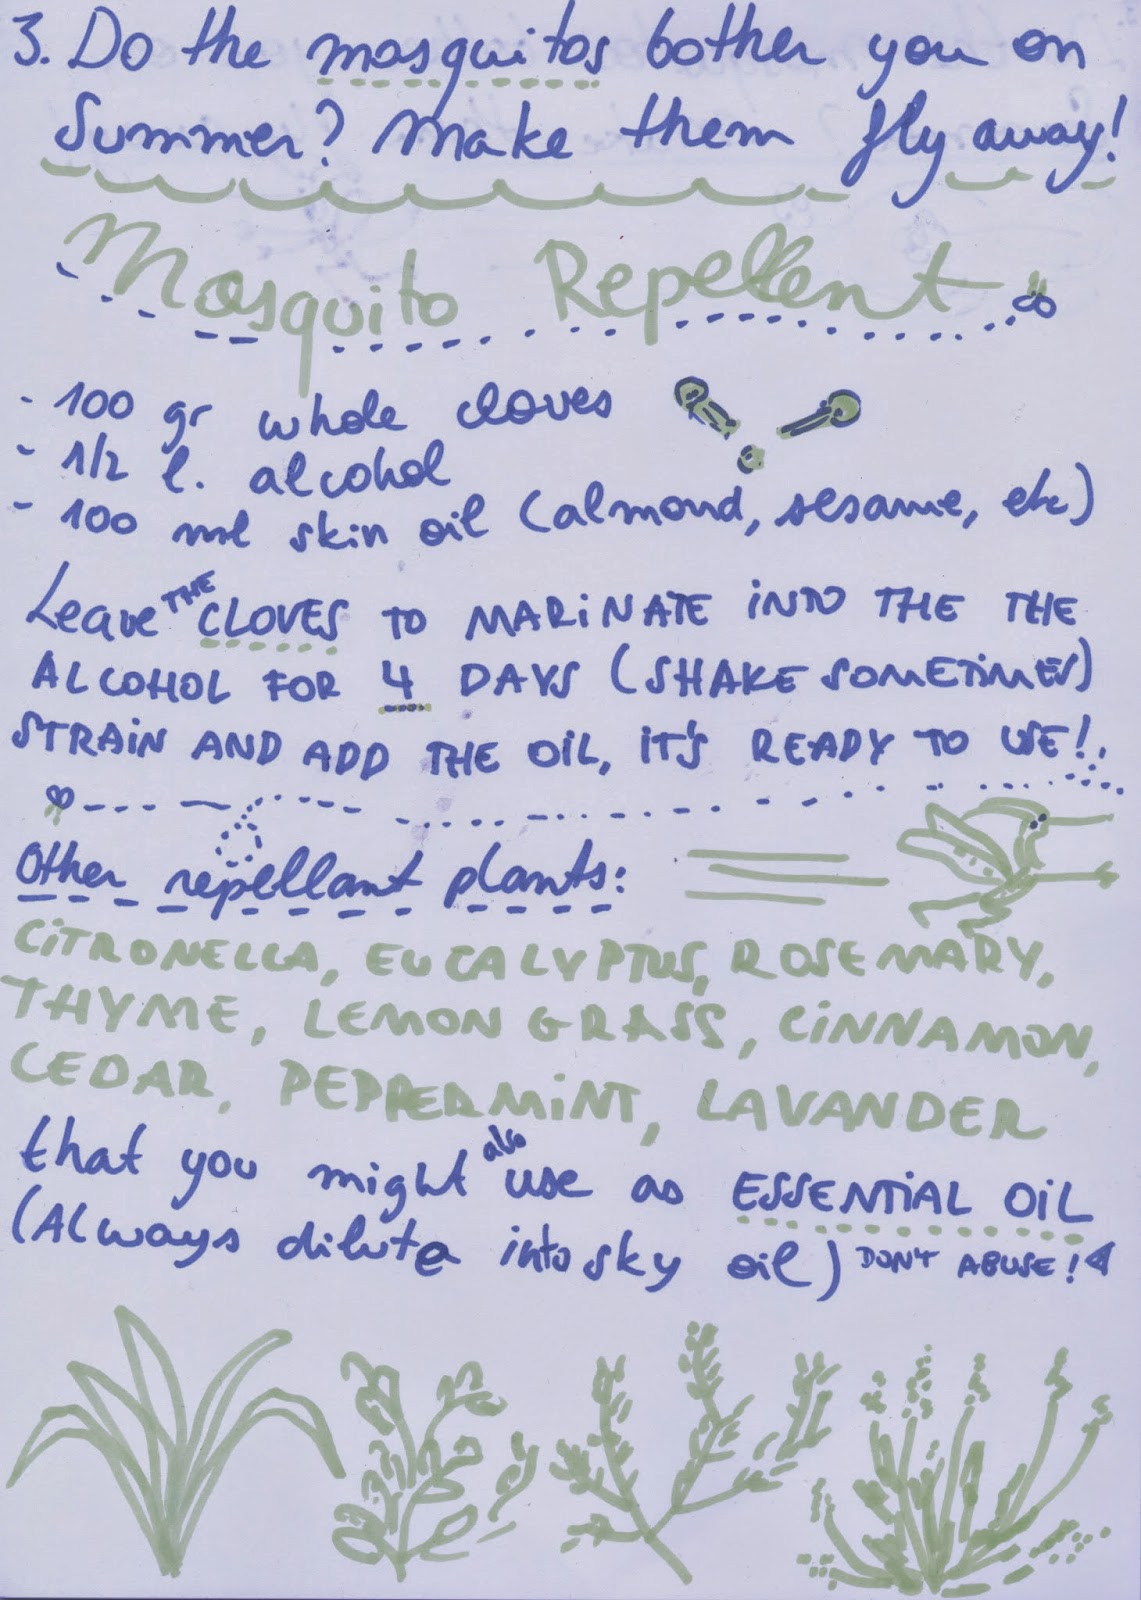 3. Do the mosquitos bother you on
Summer? Make them fly away!
Mosquito Repellent
- 100 gr whole cloves
- 1/2 l. alcohol
- 100 ml skin oil (almond, sesame, etc)
Leave THE CLOVES TO MARINATE INTO THE THE
ALCOHOL FOR 4 DAYS (SHAKE SOMETIMES)
STRAIN AND ADD THE OIL, IT'S READY TO USE!.
Other repellant plants:
CITRONELLA, EUCALYPTUS, ROSEMARY,
THYME, LEMON GRASS, CINNAMON,
CEDAR, PEPPERMINT, LAVANDER
that you might also use as ESSENTIAL OIL
(Always dilute into sky oil) DON'T ABUSE!